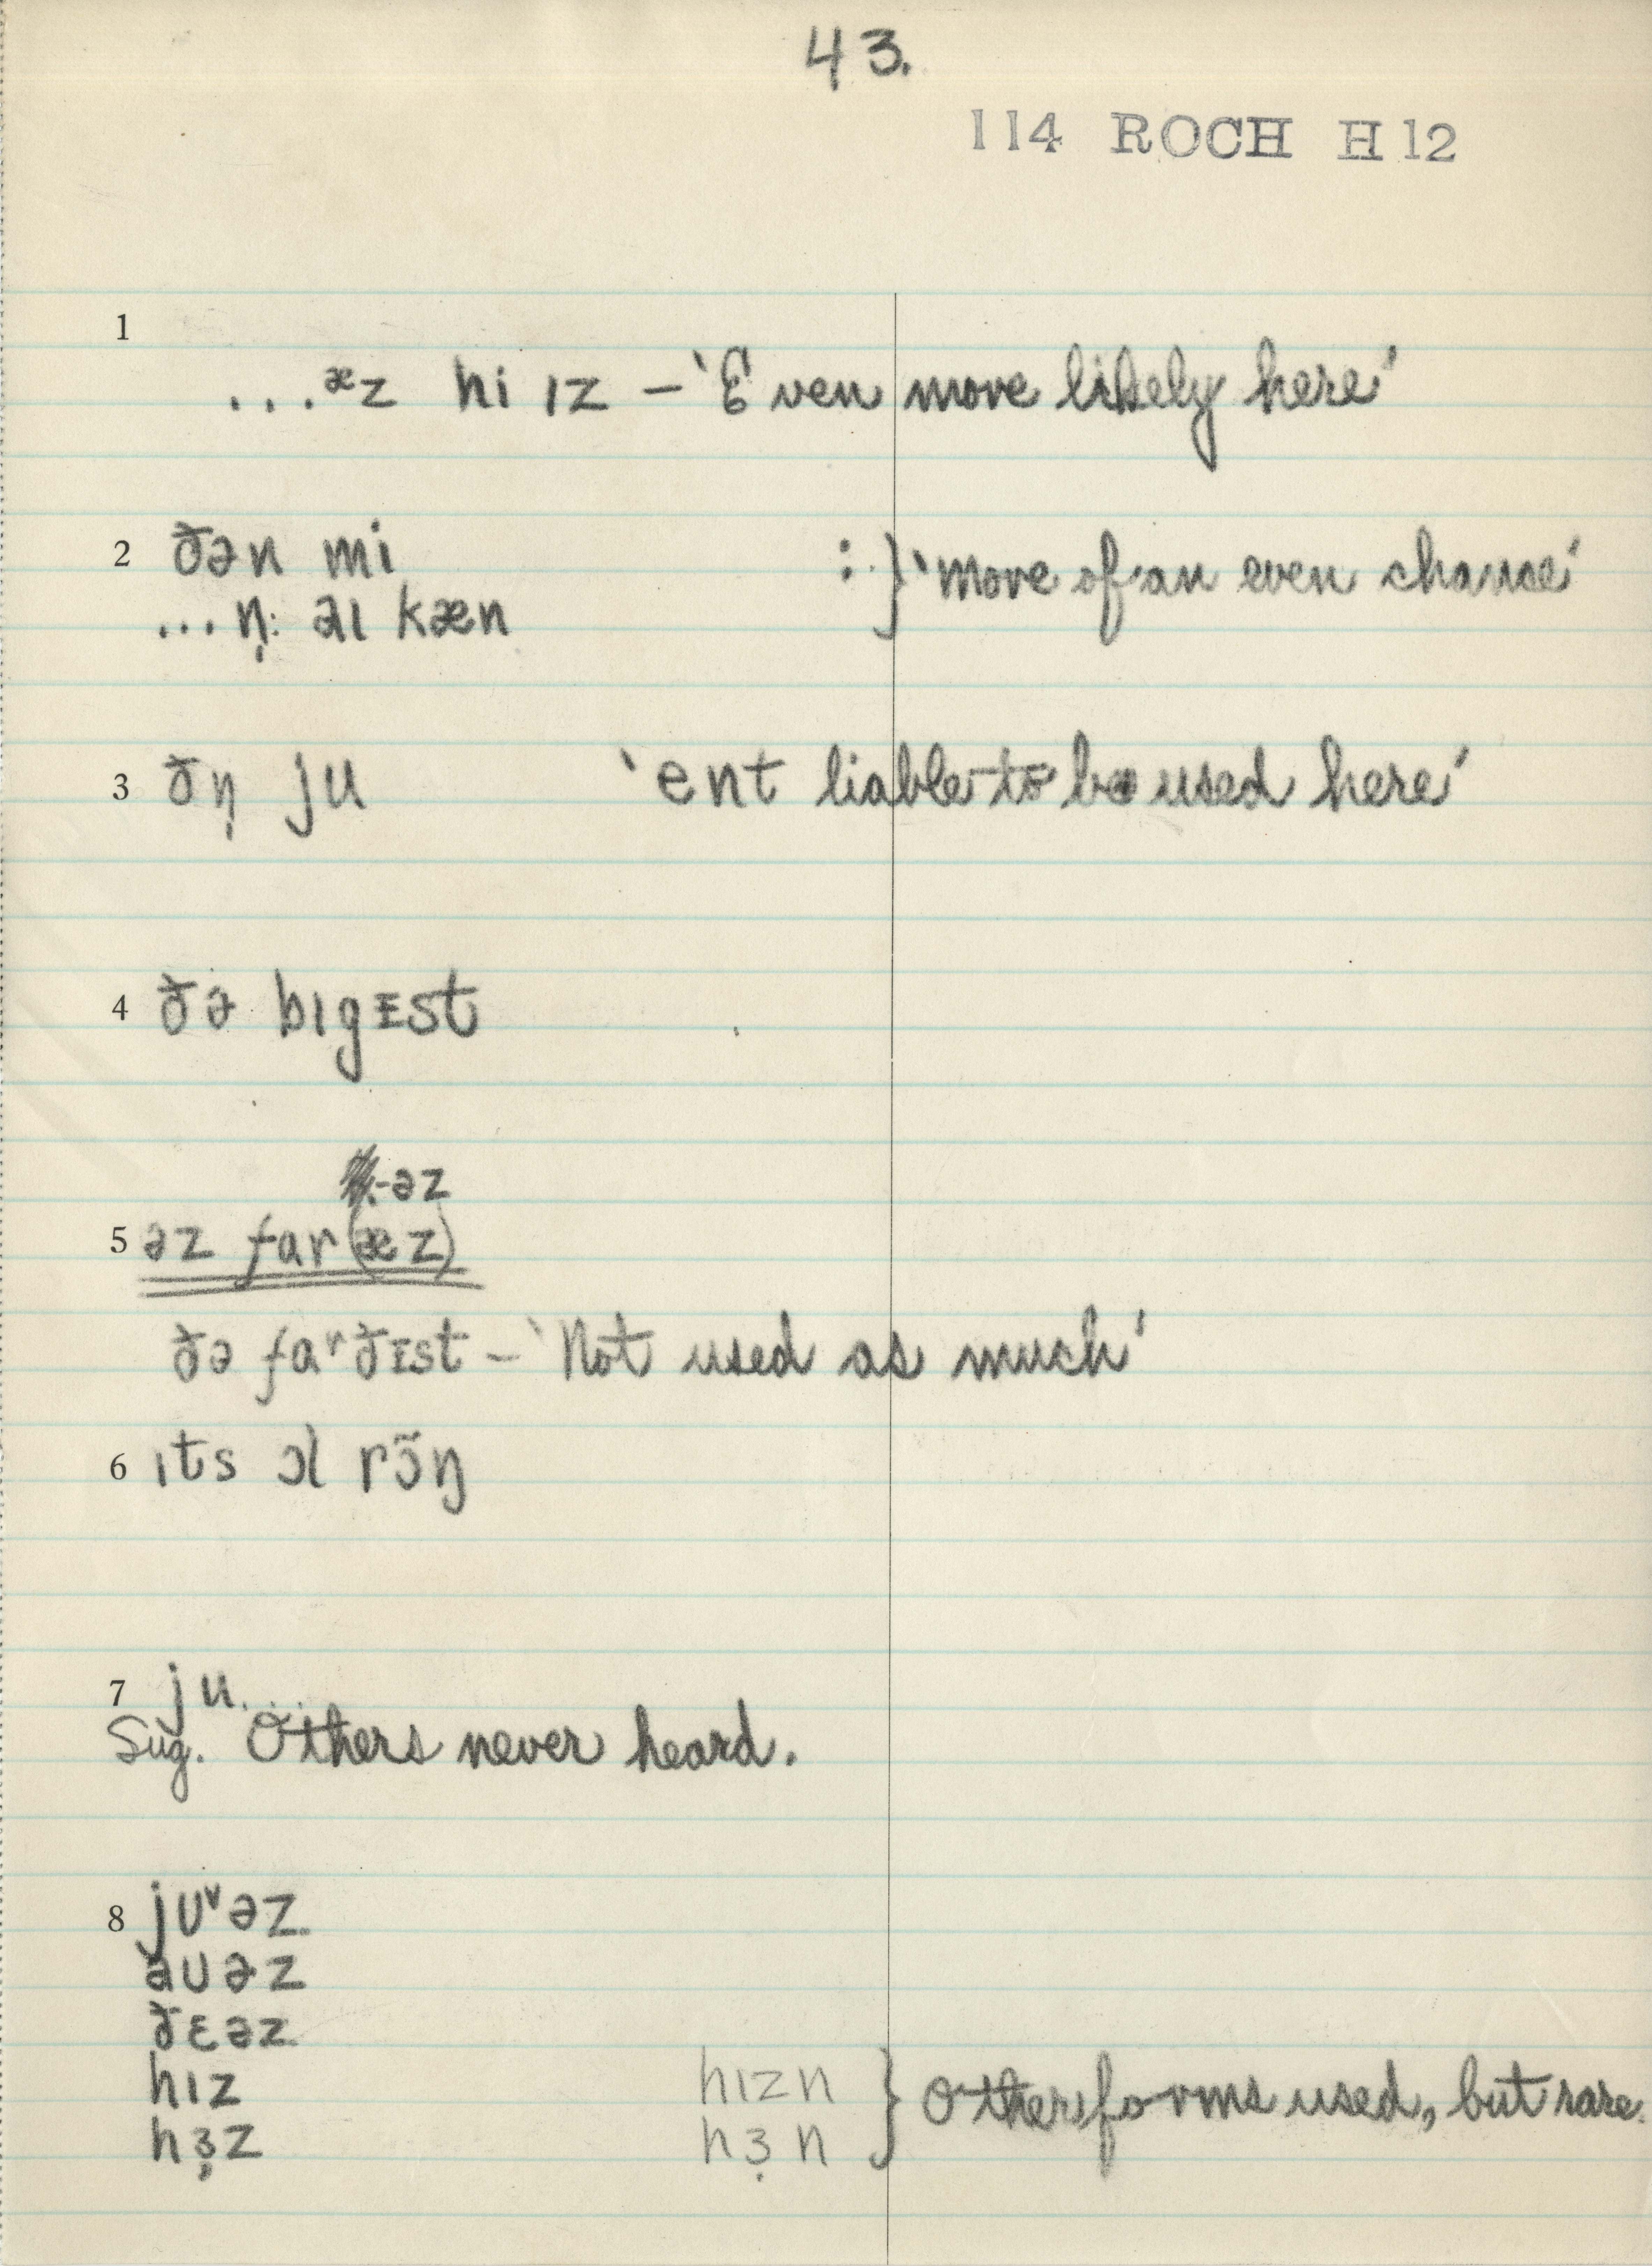 43.
114 ROCH H12
1
...ᵆz hi ɪz – 'Even more likely here'
2 ðən mi : } 'More of an even chance'
... n̩: əɪ kæn
3 ðn̩ ju 'ent liable to be used here'
4 ðə bɪgᴇst
-əz
5 əz far (æz)
ðə faʳðᴇst – 'Not used as much'
6 ɪts ɔl rɔ̃ŋ
7 ju....
Sug. Others never heard.
8 jᴜᵛəz
aᴜəz
ðɛəz
hɪz hɪzn } Other forms used, but rare.
hɜ̣z hɜ̣n